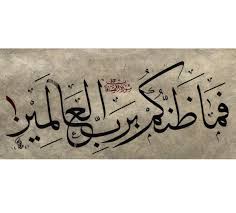 فَمَا ظَنُّكُمْ بِرَبِّ الْعَالَمِينَ